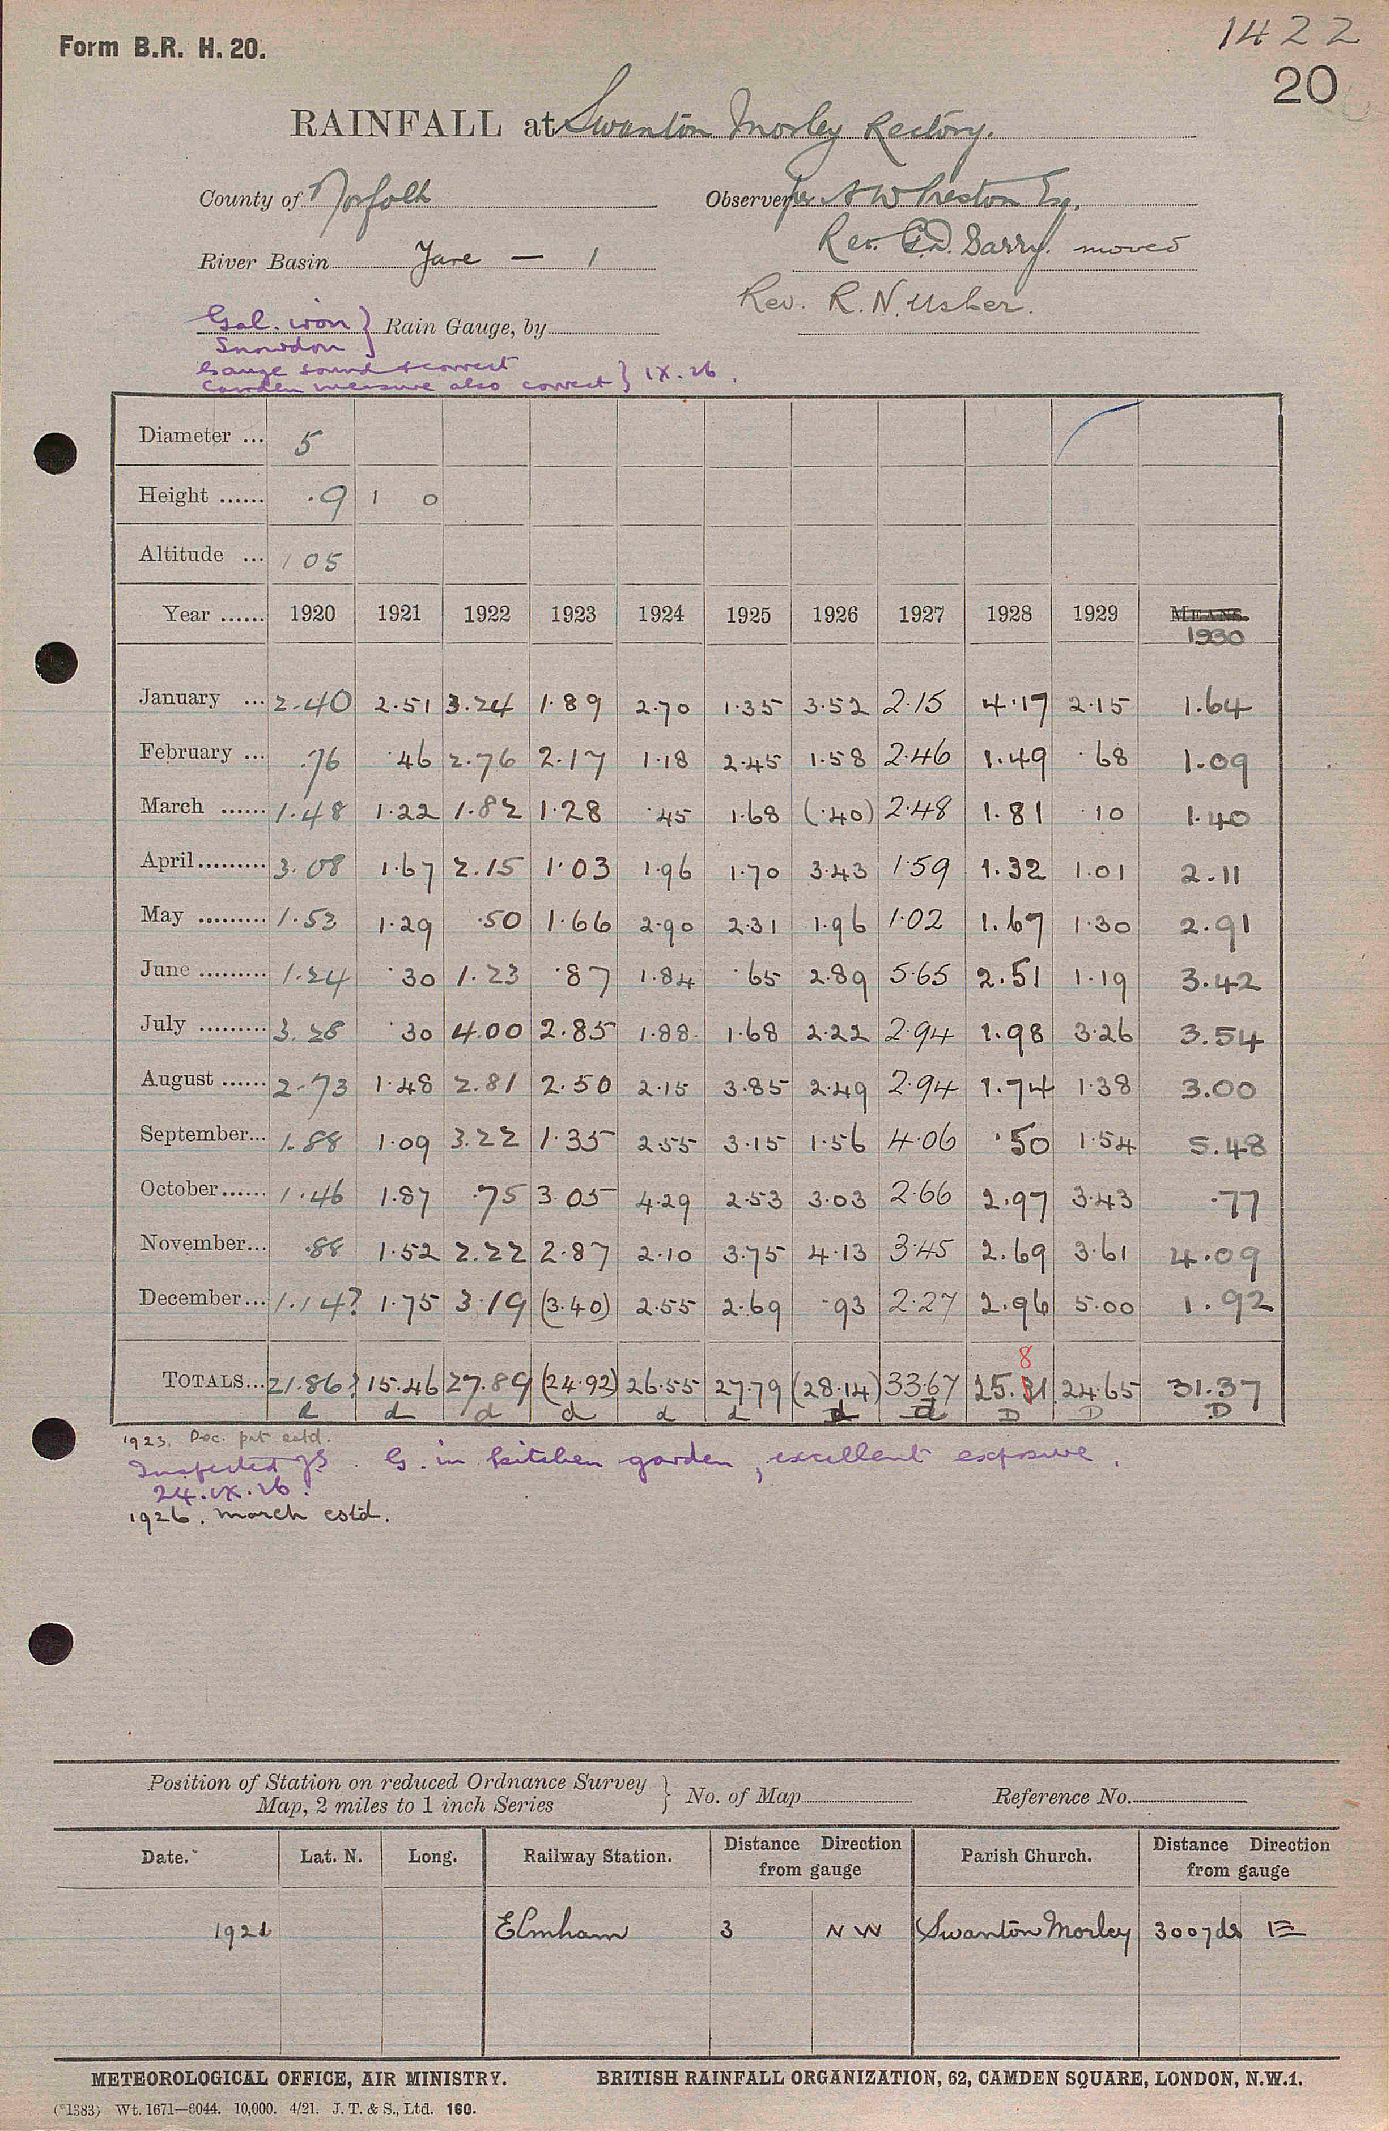 Form B.R. H. 20.
1422
20
RAINFALL at Swanton Morley Rectory.
County of Norfolk
Observer per A W Preston Esq.
River Basin Yare — 1
Rev. G.D. Barry. moved
Rev. R. N. Usher.
Gal. iron } Rain Gauge, by
Snowdon
Gauge sound & correct
Camden measure also correct } IX. 26.
Diameter ... 5
Height ...... .9 1 0
Altitude ... 105
Year ...... 1920 1921 1922 1923 1924 1925 1926 1927 1928 1929 MEANS.
1930
January ... 2.40 2.51 3.24 1.89 2.70 1.35 3.52 2.15 4.17 2.15 1.64
February ... .76 .46 2.76 2.17 1.18 2.45 1.58 2.46 1.49 .68 1.09
March ...... 1.48 1.22 1.82 1.28 .45 1.68 (.40) 2.48 1.81 .10 1.40
April ......... 3.08 1.67 2.15 1.03 1.96 1.70 3.43 1.59 1.32 1.01 2.11
May ......... 1.53 1.29 .50 1.66 2.90 2.31 1.96 1.02 1.67 1.30 2.91
June ......... 1.24 .30 1.23 .87 1.84 .65 2.89 5.65 2.51 1.19 3.42
July ......... 3.28 .30 4.00 2.85 1.88 1.68 2.22 2.94 1.98 3.26 3.54
August ...... 2.73 1.48 2.81 2.50 2.15 3.85 2.49 2.94 1.74 1.38 3.00
September... 1.88 1.09 3.22 1.35 2.55 3.15 1.56 4.06 .50 1.54 5.48
October ...... 1.46 1.87 .75 3.05 4.29 2.53 3.03 2.66 2.97 3.43 .77
November... .88 1.52 2.22 2.87 2.10 3.75 4.13 3.45 2.69 3.61 4.09
December... 1.14? 1.75 3.19 (3.40) 2.55 2.69 .93 2.27 2.96 5.00 1.92
8
TOTALS... 21.86? 15.46 27.89 (24.92) 26.55 27.79 (28.14) 33.67 25.31 24.65 31.37
d d d d d d d d D D D
1923. Dec. prt estd.
Inspected G. in kitchen garden, excellent exposure.
24.IX.26.
1926. March estd.
Position of Station on reduced Ordnance Survey
Map, 2 miles to 1 inch Series } No. of Map Reference No.
Date. Lat. N. Long. Railway Station. Distance Direction from gauge Parish Church. Distance Direction from gauge
1921 Elmham 3 NW Swanton Morley 300 yds E
METEOROLOGICAL OFFICE, AIR MINISTRY. BRITISH RAINFALL ORGANIZATION, 62, CAMDEN SQUARE, LONDON, N.W.1.
(*1383) Wt. 1671—6044. 10,000. 4/21. J. T. & S., Ltd. 160.